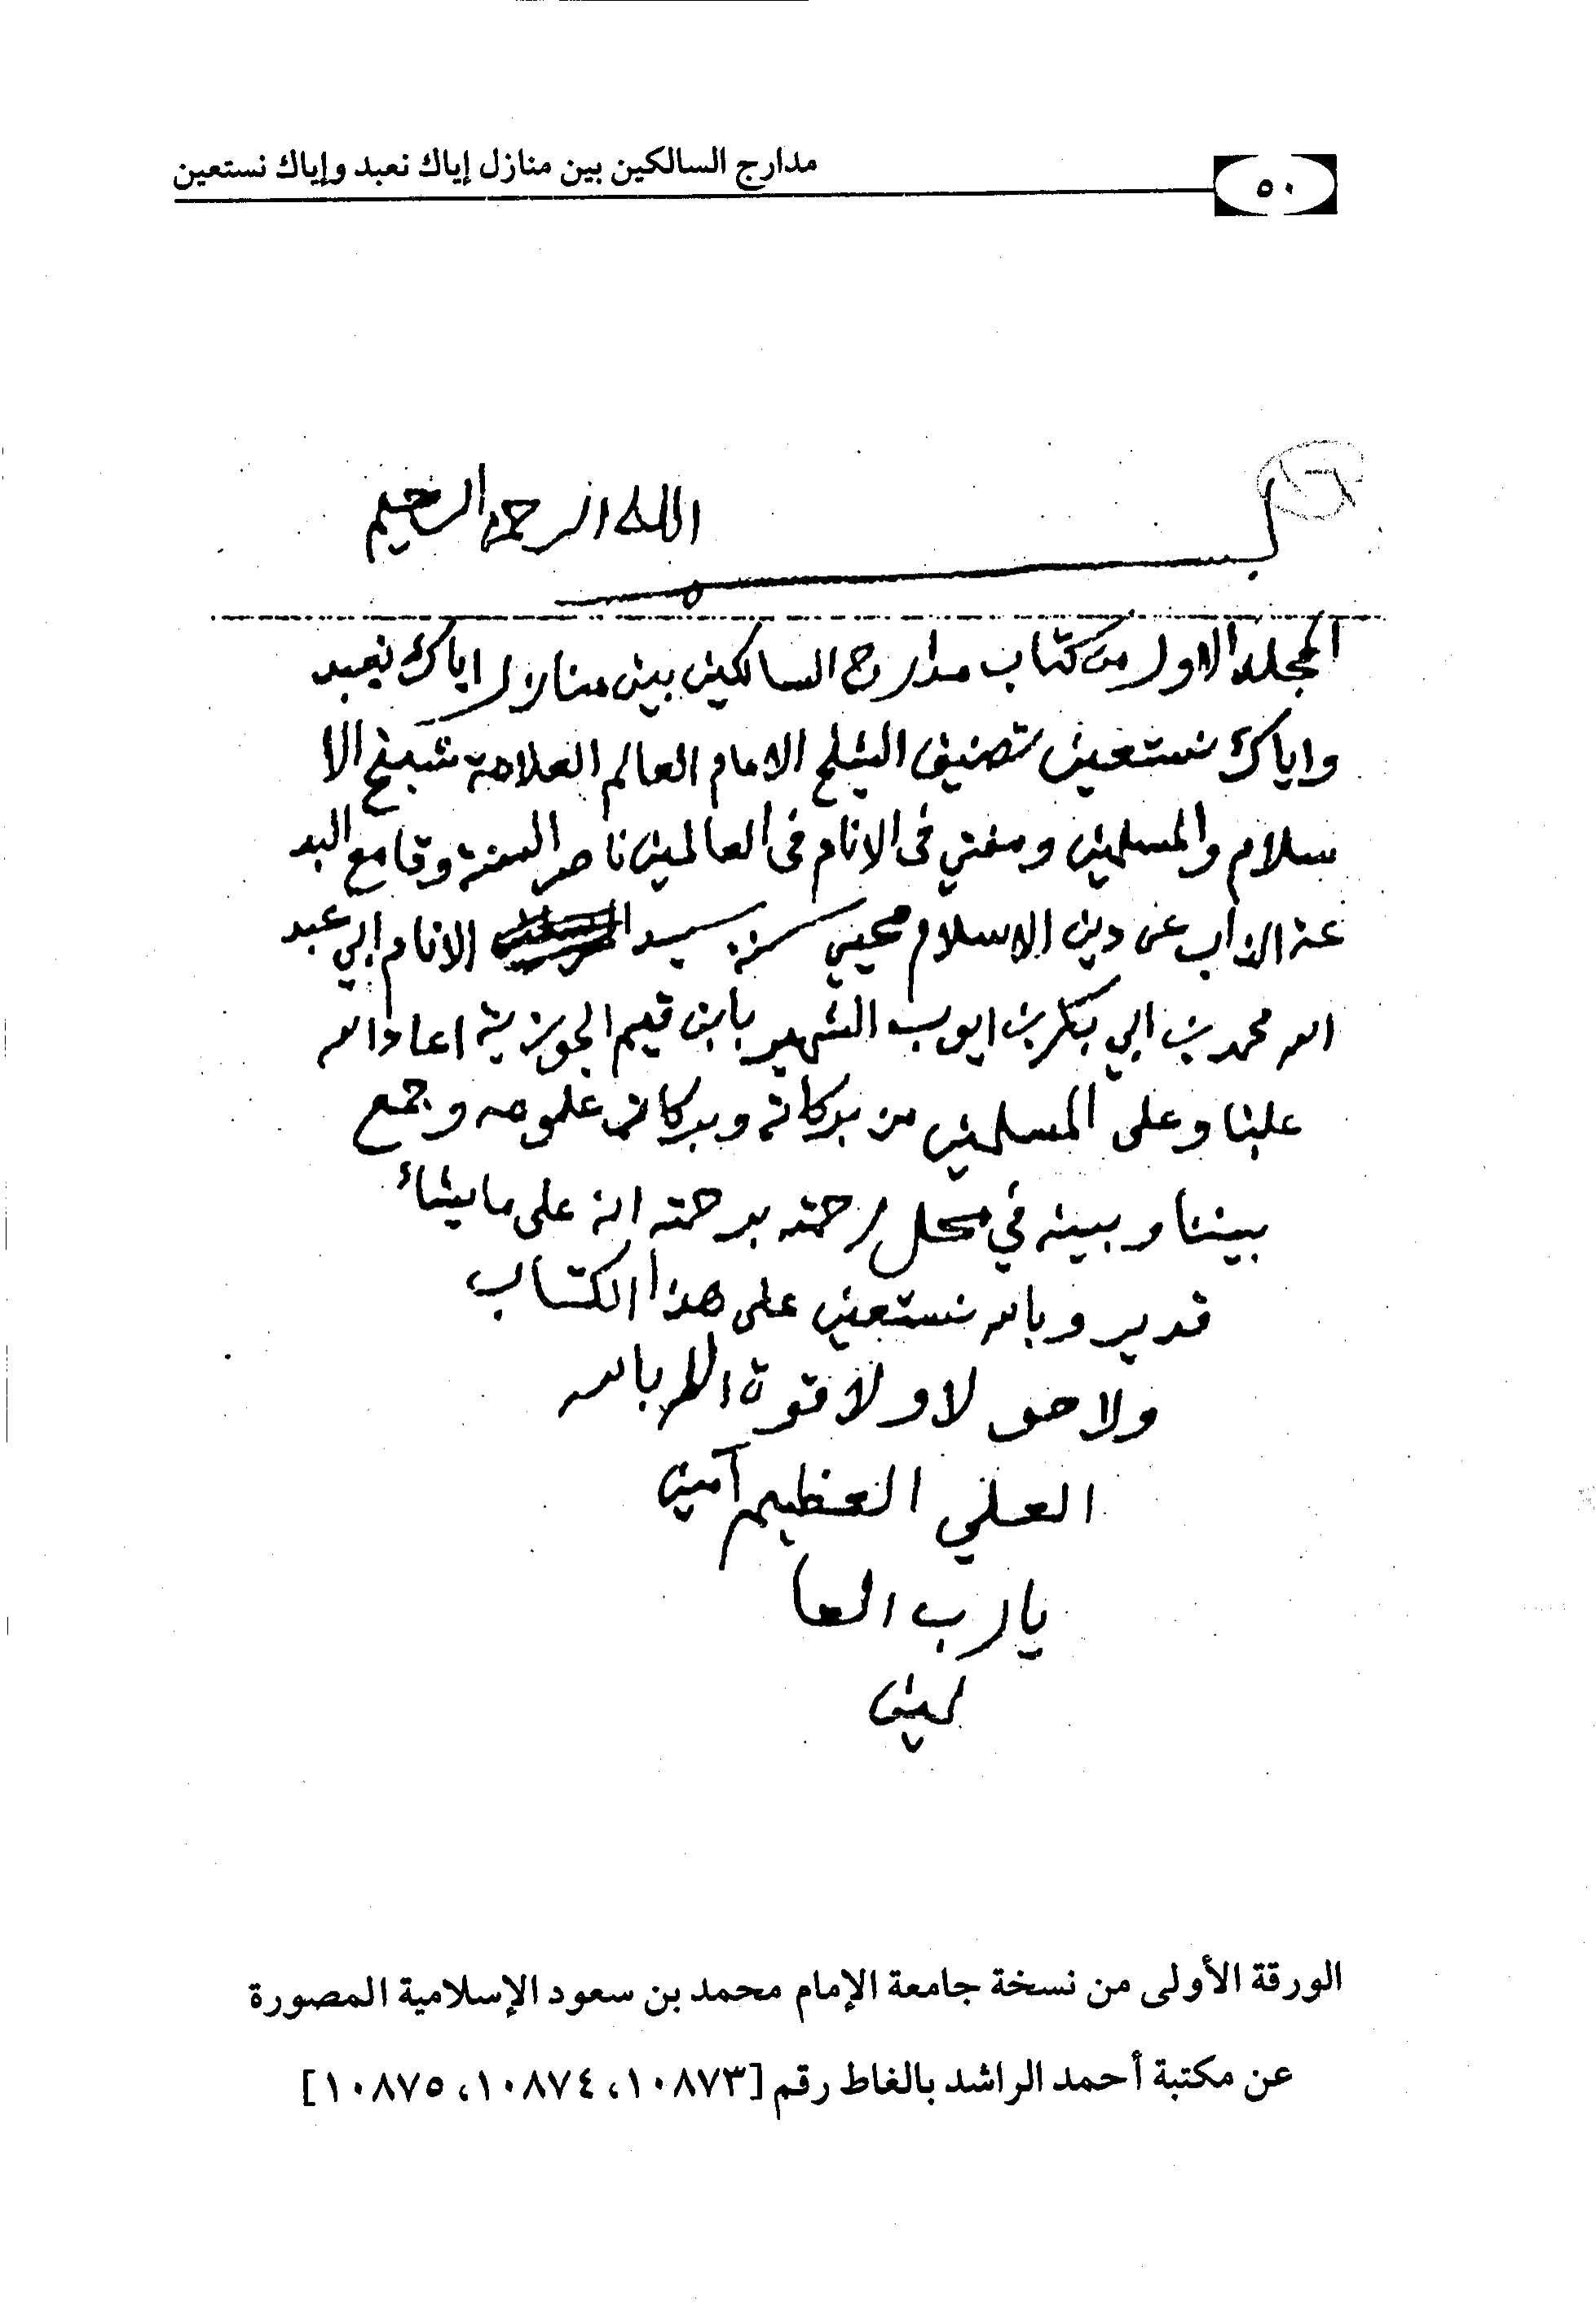 ٥٠ مدارج السالكين بين منازل إياك نعبد وإياك نستعين
بسم الله الرحمن الرحيم
المجلد الاول من كتاب مدارج السالكين بين منازل اياك نعبد
واياك نستعين تصنيف الشيخ الامام العالم العلامة شيخ الا
سلام والمسلمين ومفتي في الانام في العالمين ناصر السنة وقامع البد
عة الذاب عن دين الاسلام محيي سنة سيد الانام ابي عبد
الله محمد بن ابي بكر بن ايوب الشهير بابن قيم الجوزية اعاد الله
علينا وعلى المسلمين من بركاته وبركات علومه وجمع
بيننا وبينه في محل رحمته برحمته انه على ما يشاء
قدير وبالله نستعين على هذا الكتاب
ولا حو لا ولا قوة الا بالله
العلي العظيم آمين
يا رب العا
لمين
الورقة الأولى من نسخة جامعة الإمام محمد بن سعود الإسلامية المصورة
عن مكتبة أحمد الراشد بالغاط رقم [١٠٨٧٣، ١٠٨٧٤، ١٠٨٧٥]